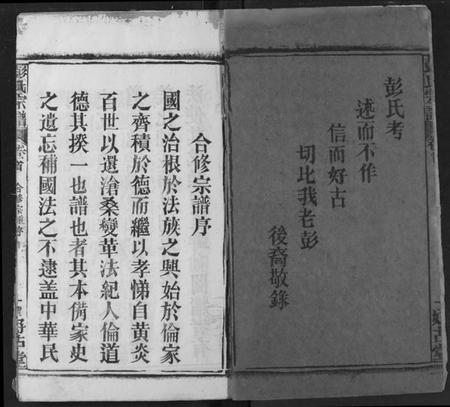 彭氏考
述而不作
信而好古
切比我老彭
後裔敬錄
合修宗譜序
國之治根於法族之興始於倫家
之齊積於德而繼以孝悌自黃炎
百世以還滄桑變革法紀人倫道
德其揆一也譜也者其本備家史
之遺忘補國法之不逮蓋中華民
彭氏宗譜
卷首
合修宗譜序
一
好古堂